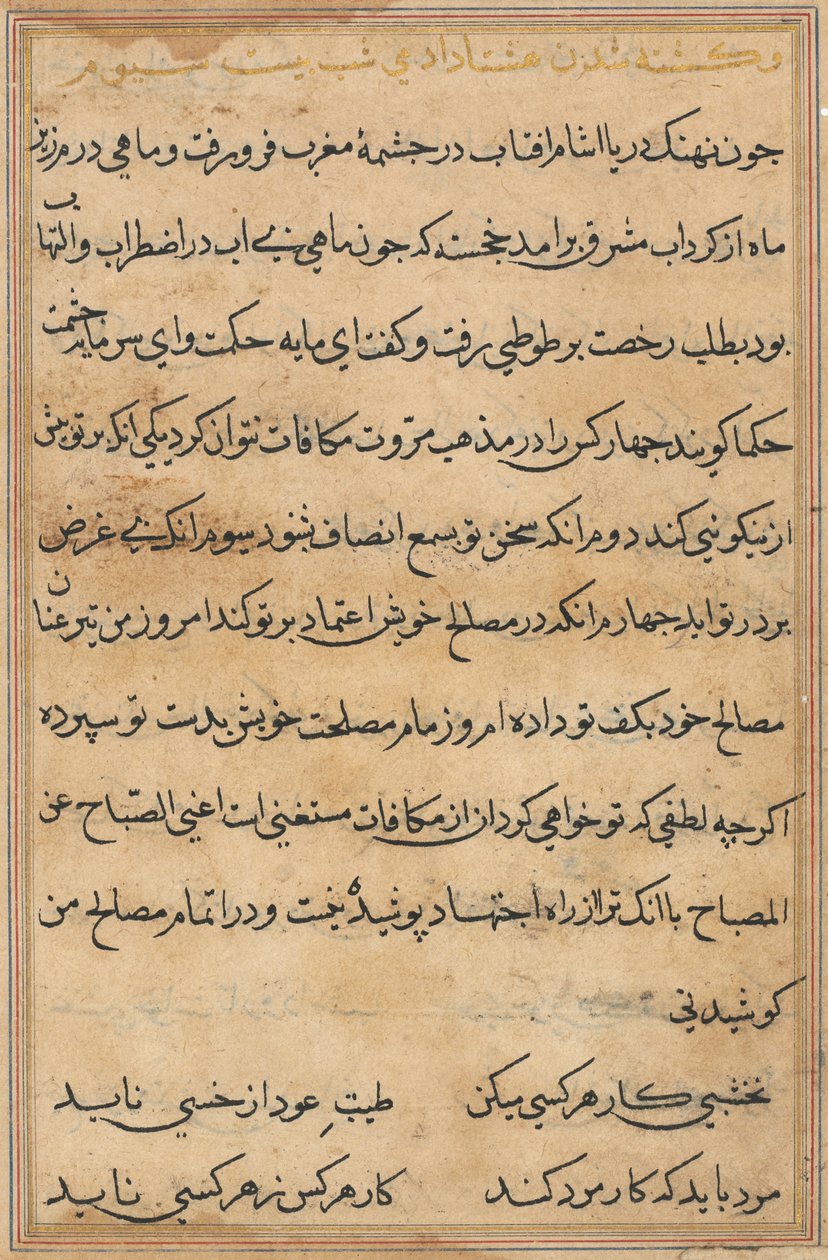 و کشته شدن هشتاد ادمی شب بیست سیوم
جون نهنک دریا اشام افتاب در جشمهٔ مغرب فرو رفت و ماهی در مرزیز
ماه از کرداب مشرق برامد خجسته که جون ماهی بی اب در اضطراب و التهاب
بود بطلب رخصت بر طوطی رفت و کفت ای مایه حکمت و ای سرمایه حشمت
حکما کویند جهار کس را در مذهب مرّوت مکافات نتوان کرد یکی انک بر تو پیش
از نیکو نیی کند دوم انکه سخن تو بسمع انصاف شنود سیوم انک بی غرض
بر در تو اید جهارم انکه در مصالح خویش اعتماد بر تو کند امروز من نیز عنان
مصالح خود بکف تو داده ام و زمام مصلحت خویش بدست تو سپرده
اکرچه لطفی که تو خواهی کرد ان از مکافات مستغنی است اغنی الصّباح عن
المصباح با انک ترا از راه اجتهاد پوشیدهٔ نیست و در اتمام مصالح من
کوشیدنی
نخشبی کار هر کسی میکن
طیب عود از خسی ناید
مرد باید که کار مرد کند
کار هر کس ز هر کسی ناید